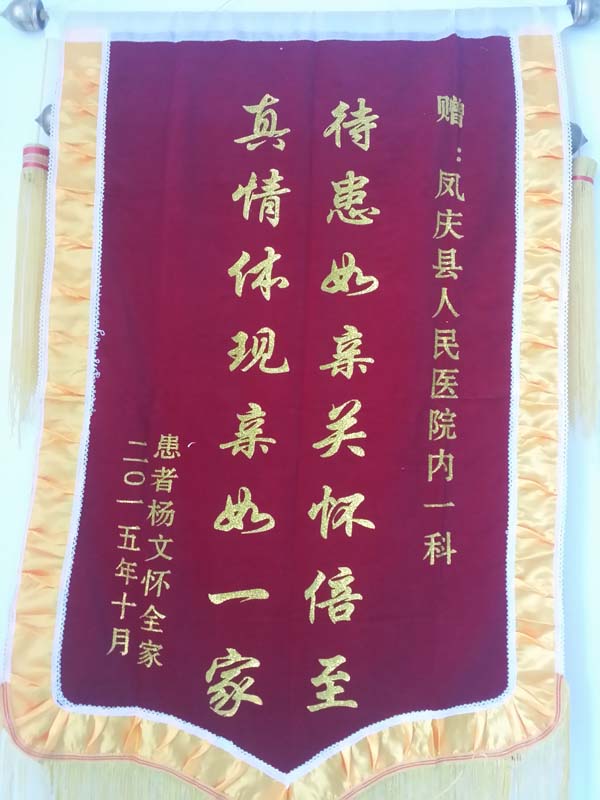 赠：凤庆县人民医院内一科
待患如亲关怀倍至
真情体现亲如一家
患者杨文怀全家
二〇一五年十月